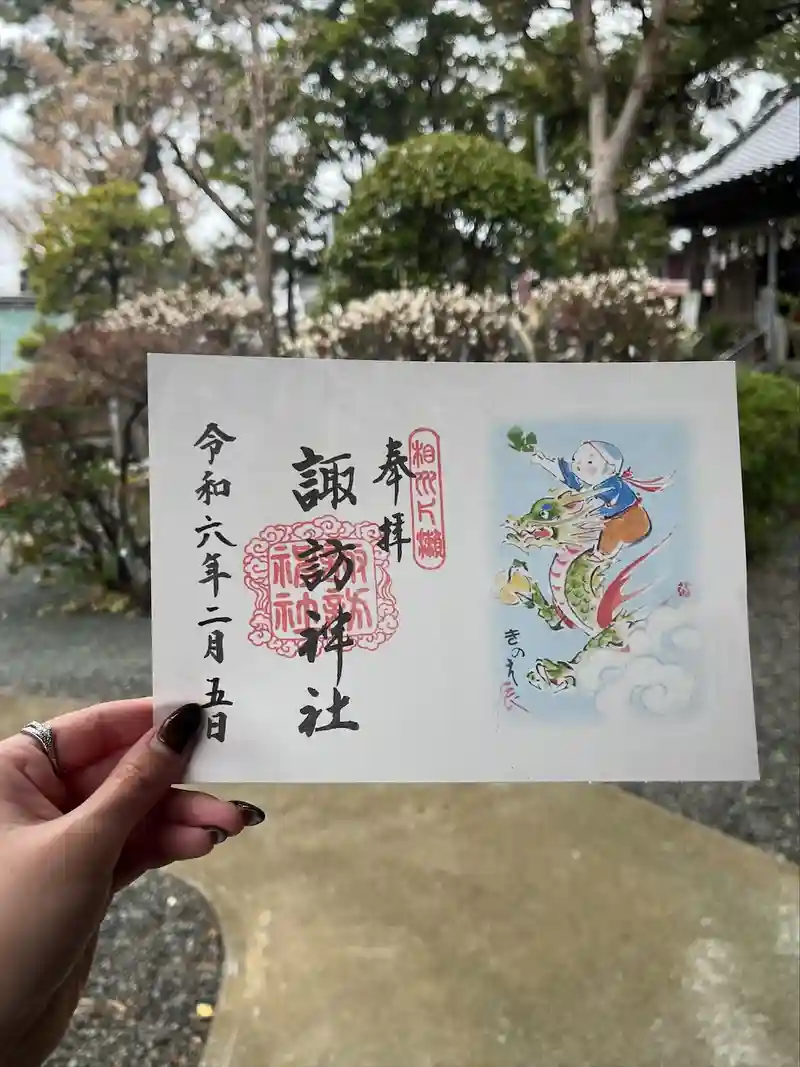 相州片瀬
奉拝
諏訪神社
諏訪
神社
令和六年二月五日
きのえ辰